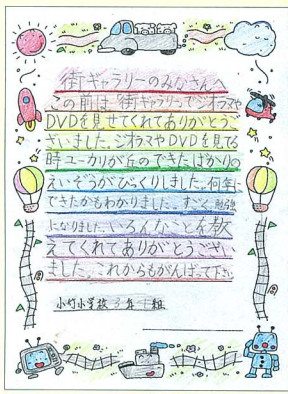 街ギャラリーのみなさんへ
この前は「街ギャラリー」でジオラマや
DVDを見せてくれてありがとうご
ざいました。ジオラマやDVDを見てる
時ユーカリが丘のできたばかりの
えいぞうがびっくりしました。何年に
できたかもわかりました。すごく勉強
になりました。いろんなことを教
えてくれてありがとうござい
ました。これからもがんばって下さい
小竹小学校3年1組